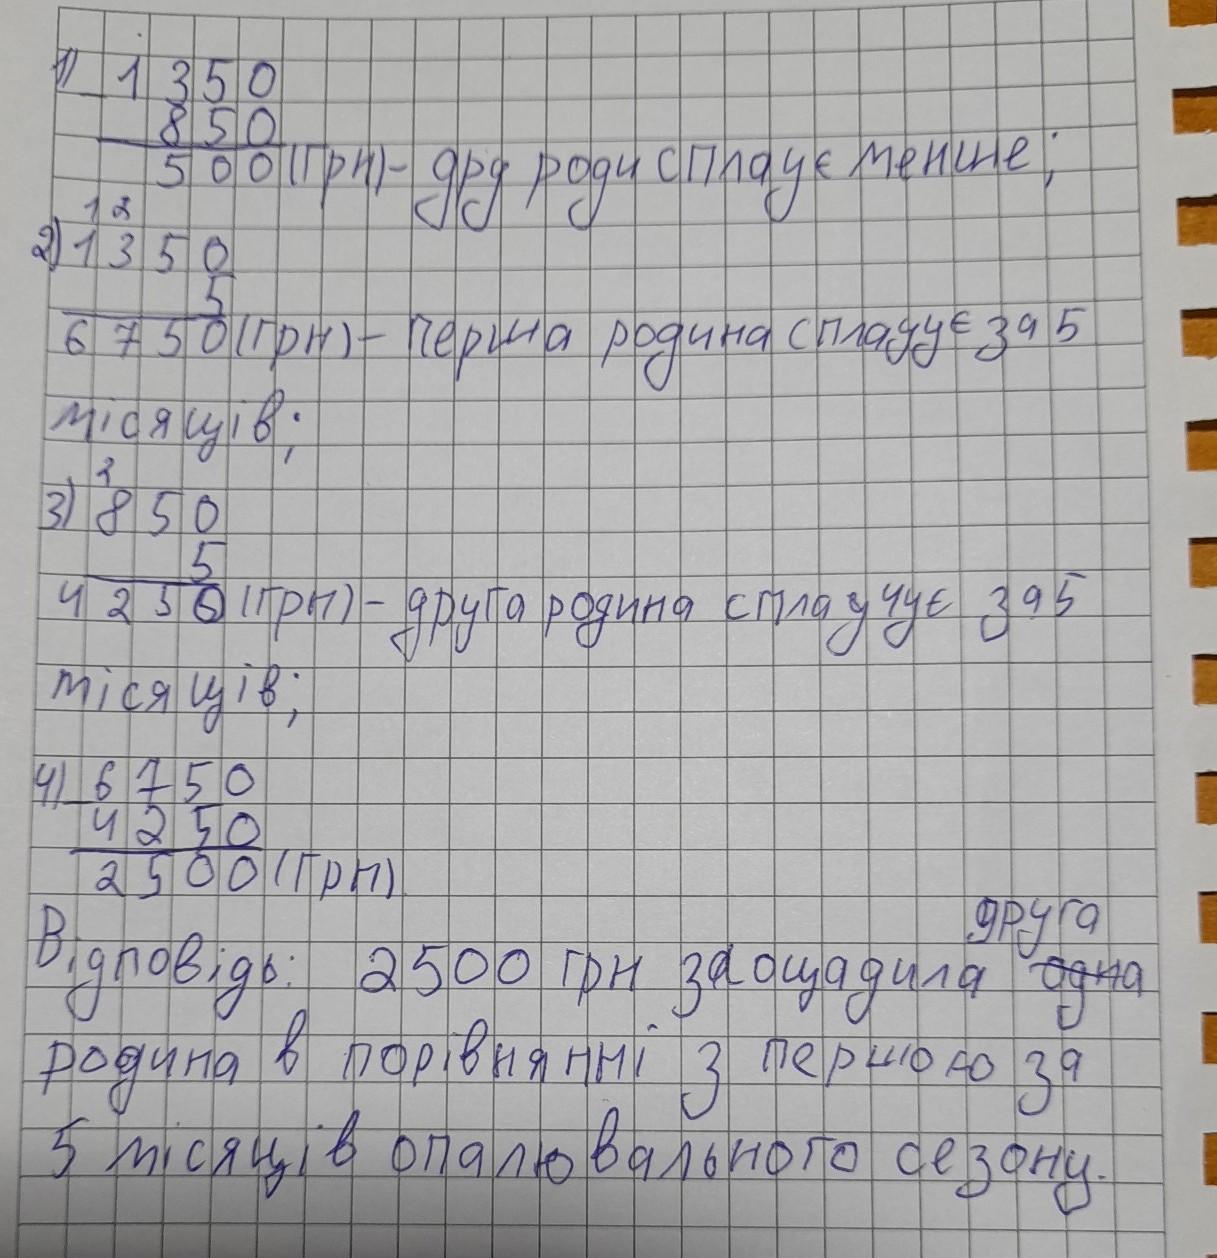 1) 1350
850
500 (грн) - дру роди сплачує менше;
1 2
2) 1350
5
6750 (грн) - перша родина сплачує за 5
місяців;
2
3) 850
5
4250 (грн) - друга родина сплачує за 5
місяців;
4) 6750
4250
2500 (грн)
друга
Відповідь: 2500 грн заощадила одна
родина в порівнянні з першою за
5 місяців опалювального сезону.